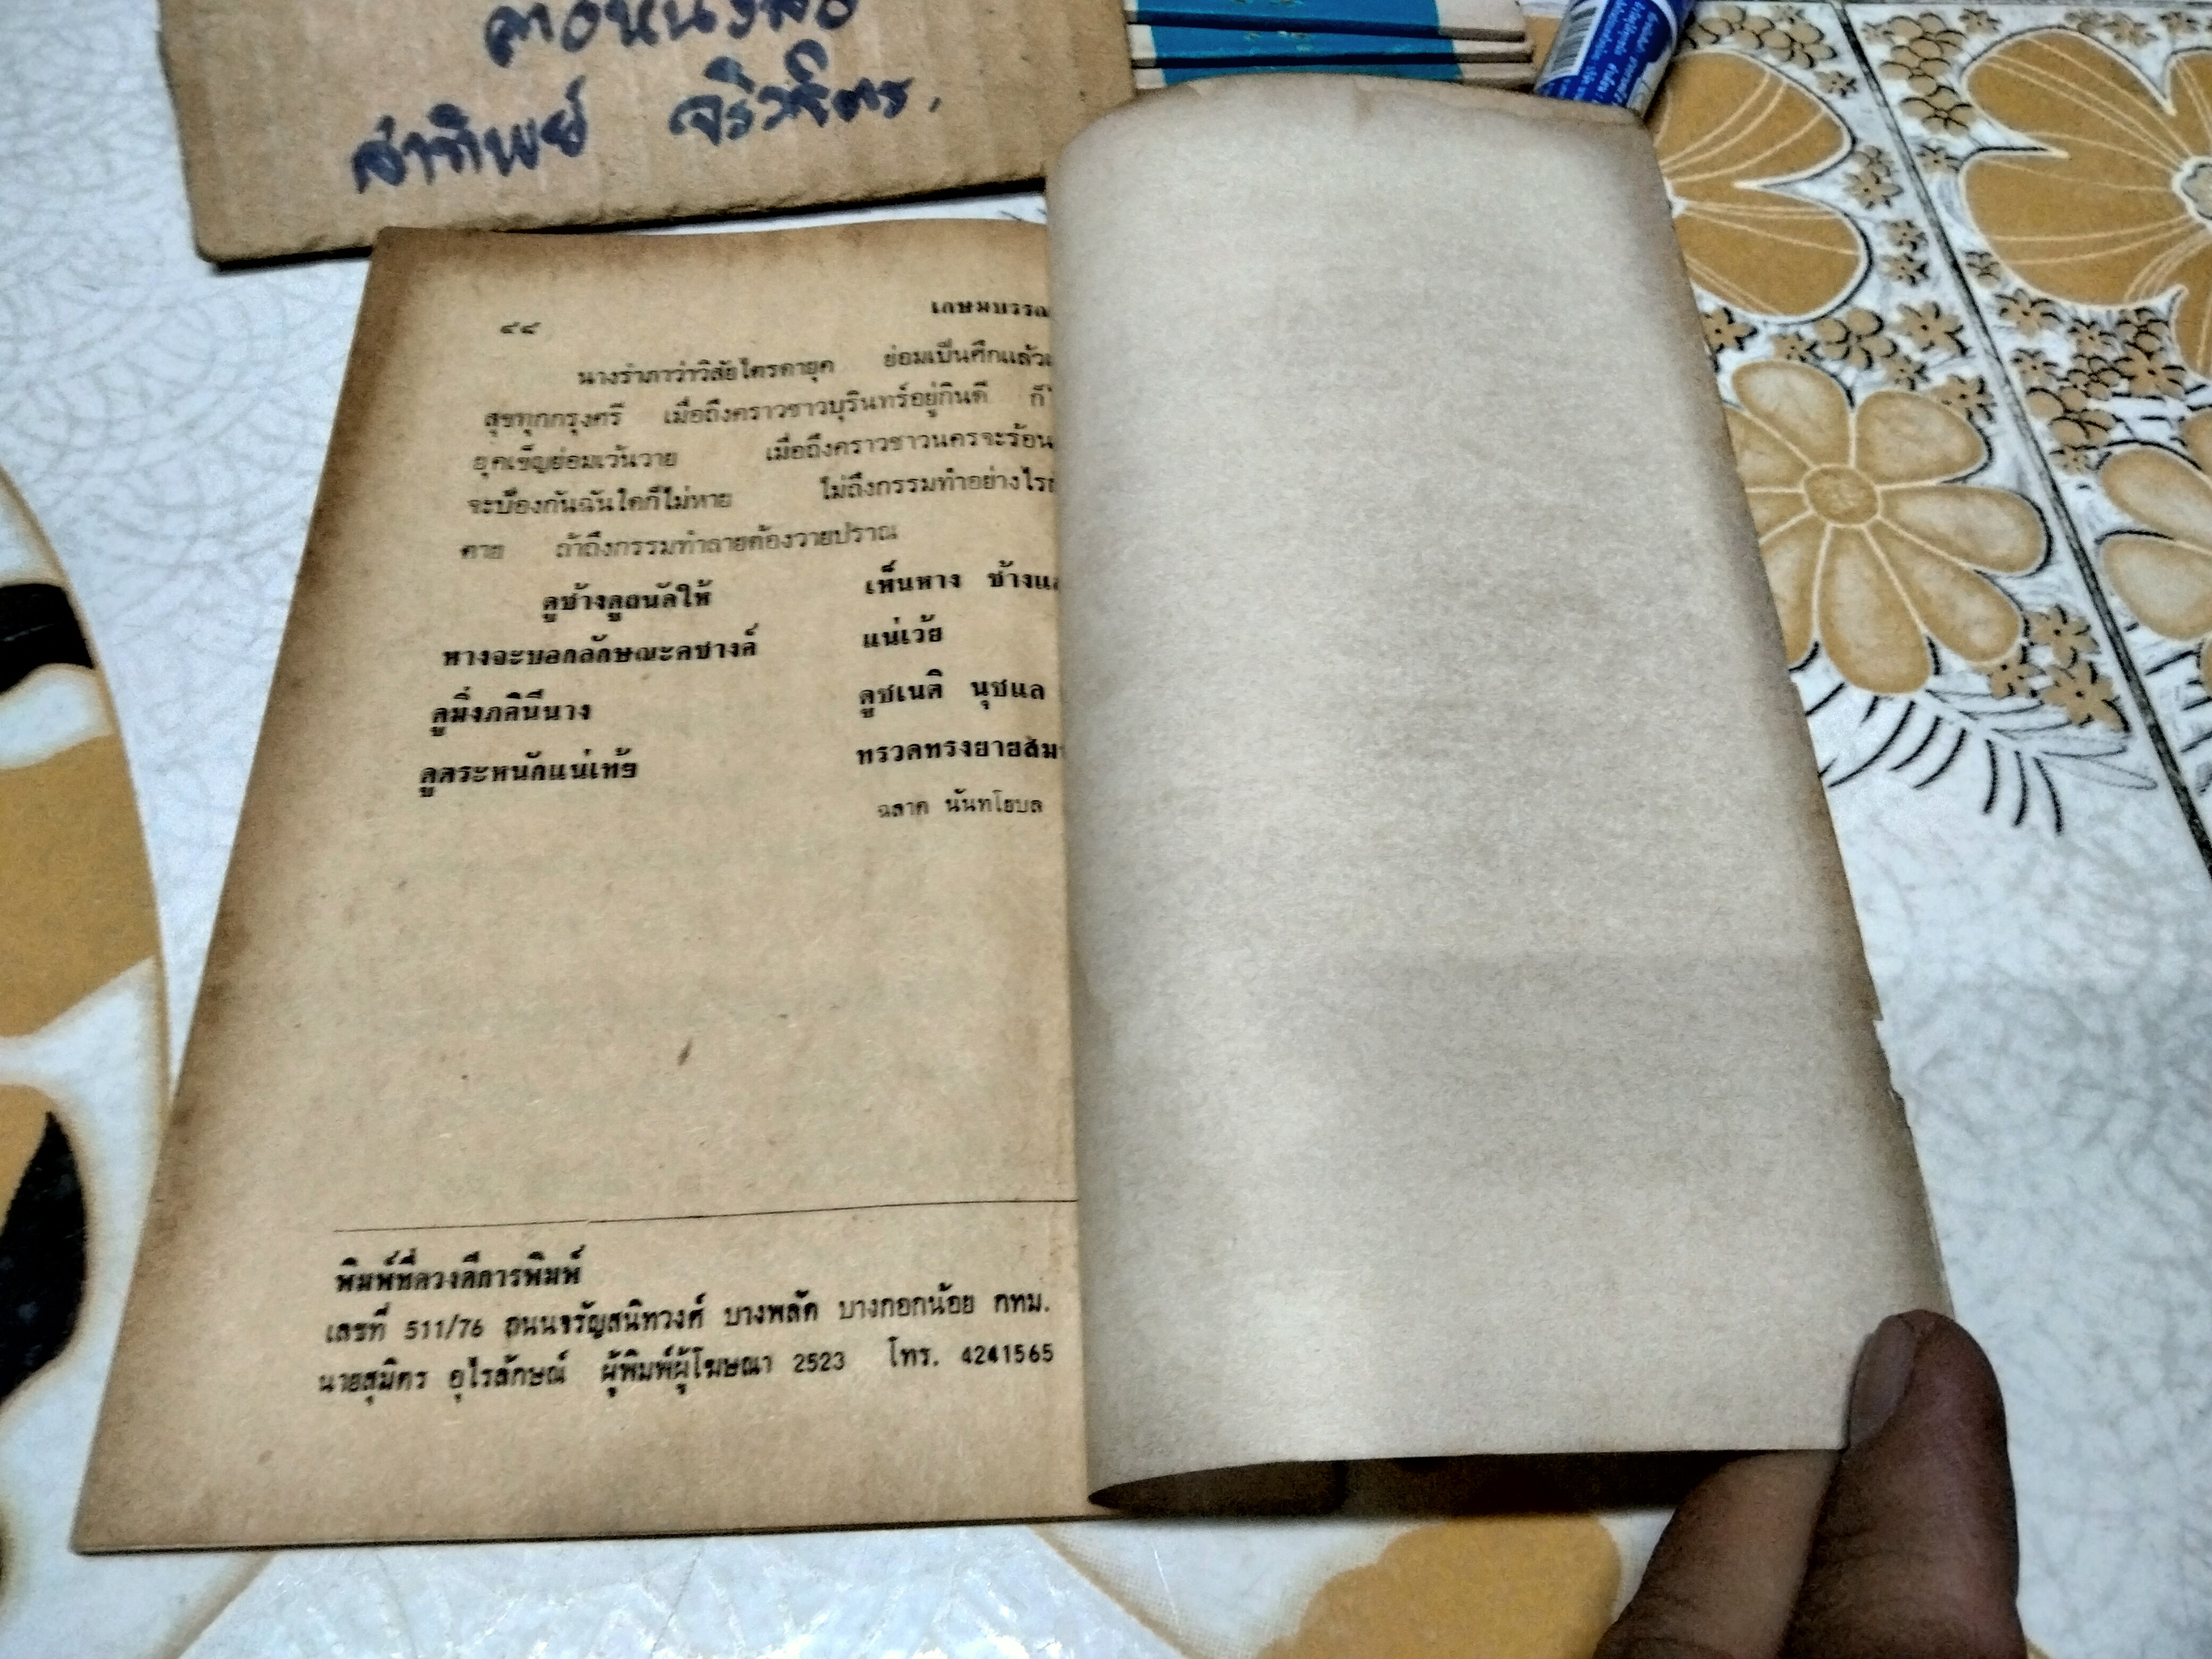 สาทิพย์ จริวจิตร.
เกษมบรรณ
๔๘
นางรำภาว่าวิสัยไตรดายุค ย่อมเป็นศึกแล้ว
สุขทุกกรุงศรี เมื่อถึงคราวชาวบุรินทร์อยู่กินดี ก็
ยุคเข็ญย่อมเว้นวาย เมื่อถึงคราวชาวนครจะร้อน
จะป้องกันฉันใดก็ไม่หาย ไม่ถึงกรรมทำอย่างไร
ตาย ถ้าถึงกรรมทำลายต้องวายปราณ
ดูช้างดูถนัดให้ เห็นหาง ช้างแล
หางจะบอกลักษณะคชางค์ แน่เว้ย
ดูมิ่งภคินีนาง ดูชเนติ นุชแล
ดูตระหนักแน่เท้ฮ ทรวดทรงยายสม
ฉลาด นันทโยบล
พิมพ์ที่ดวงดีการพิมพ์
เลขที่ 511/76 ถนนจรัญสนิทวงศ์ บางพลัด บางกอกน้อย กทม.
นายสุมิตร อุไรลักษณ์ ผู้พิมพ์ผู้โฆษณา 2523 โทร. 4241565